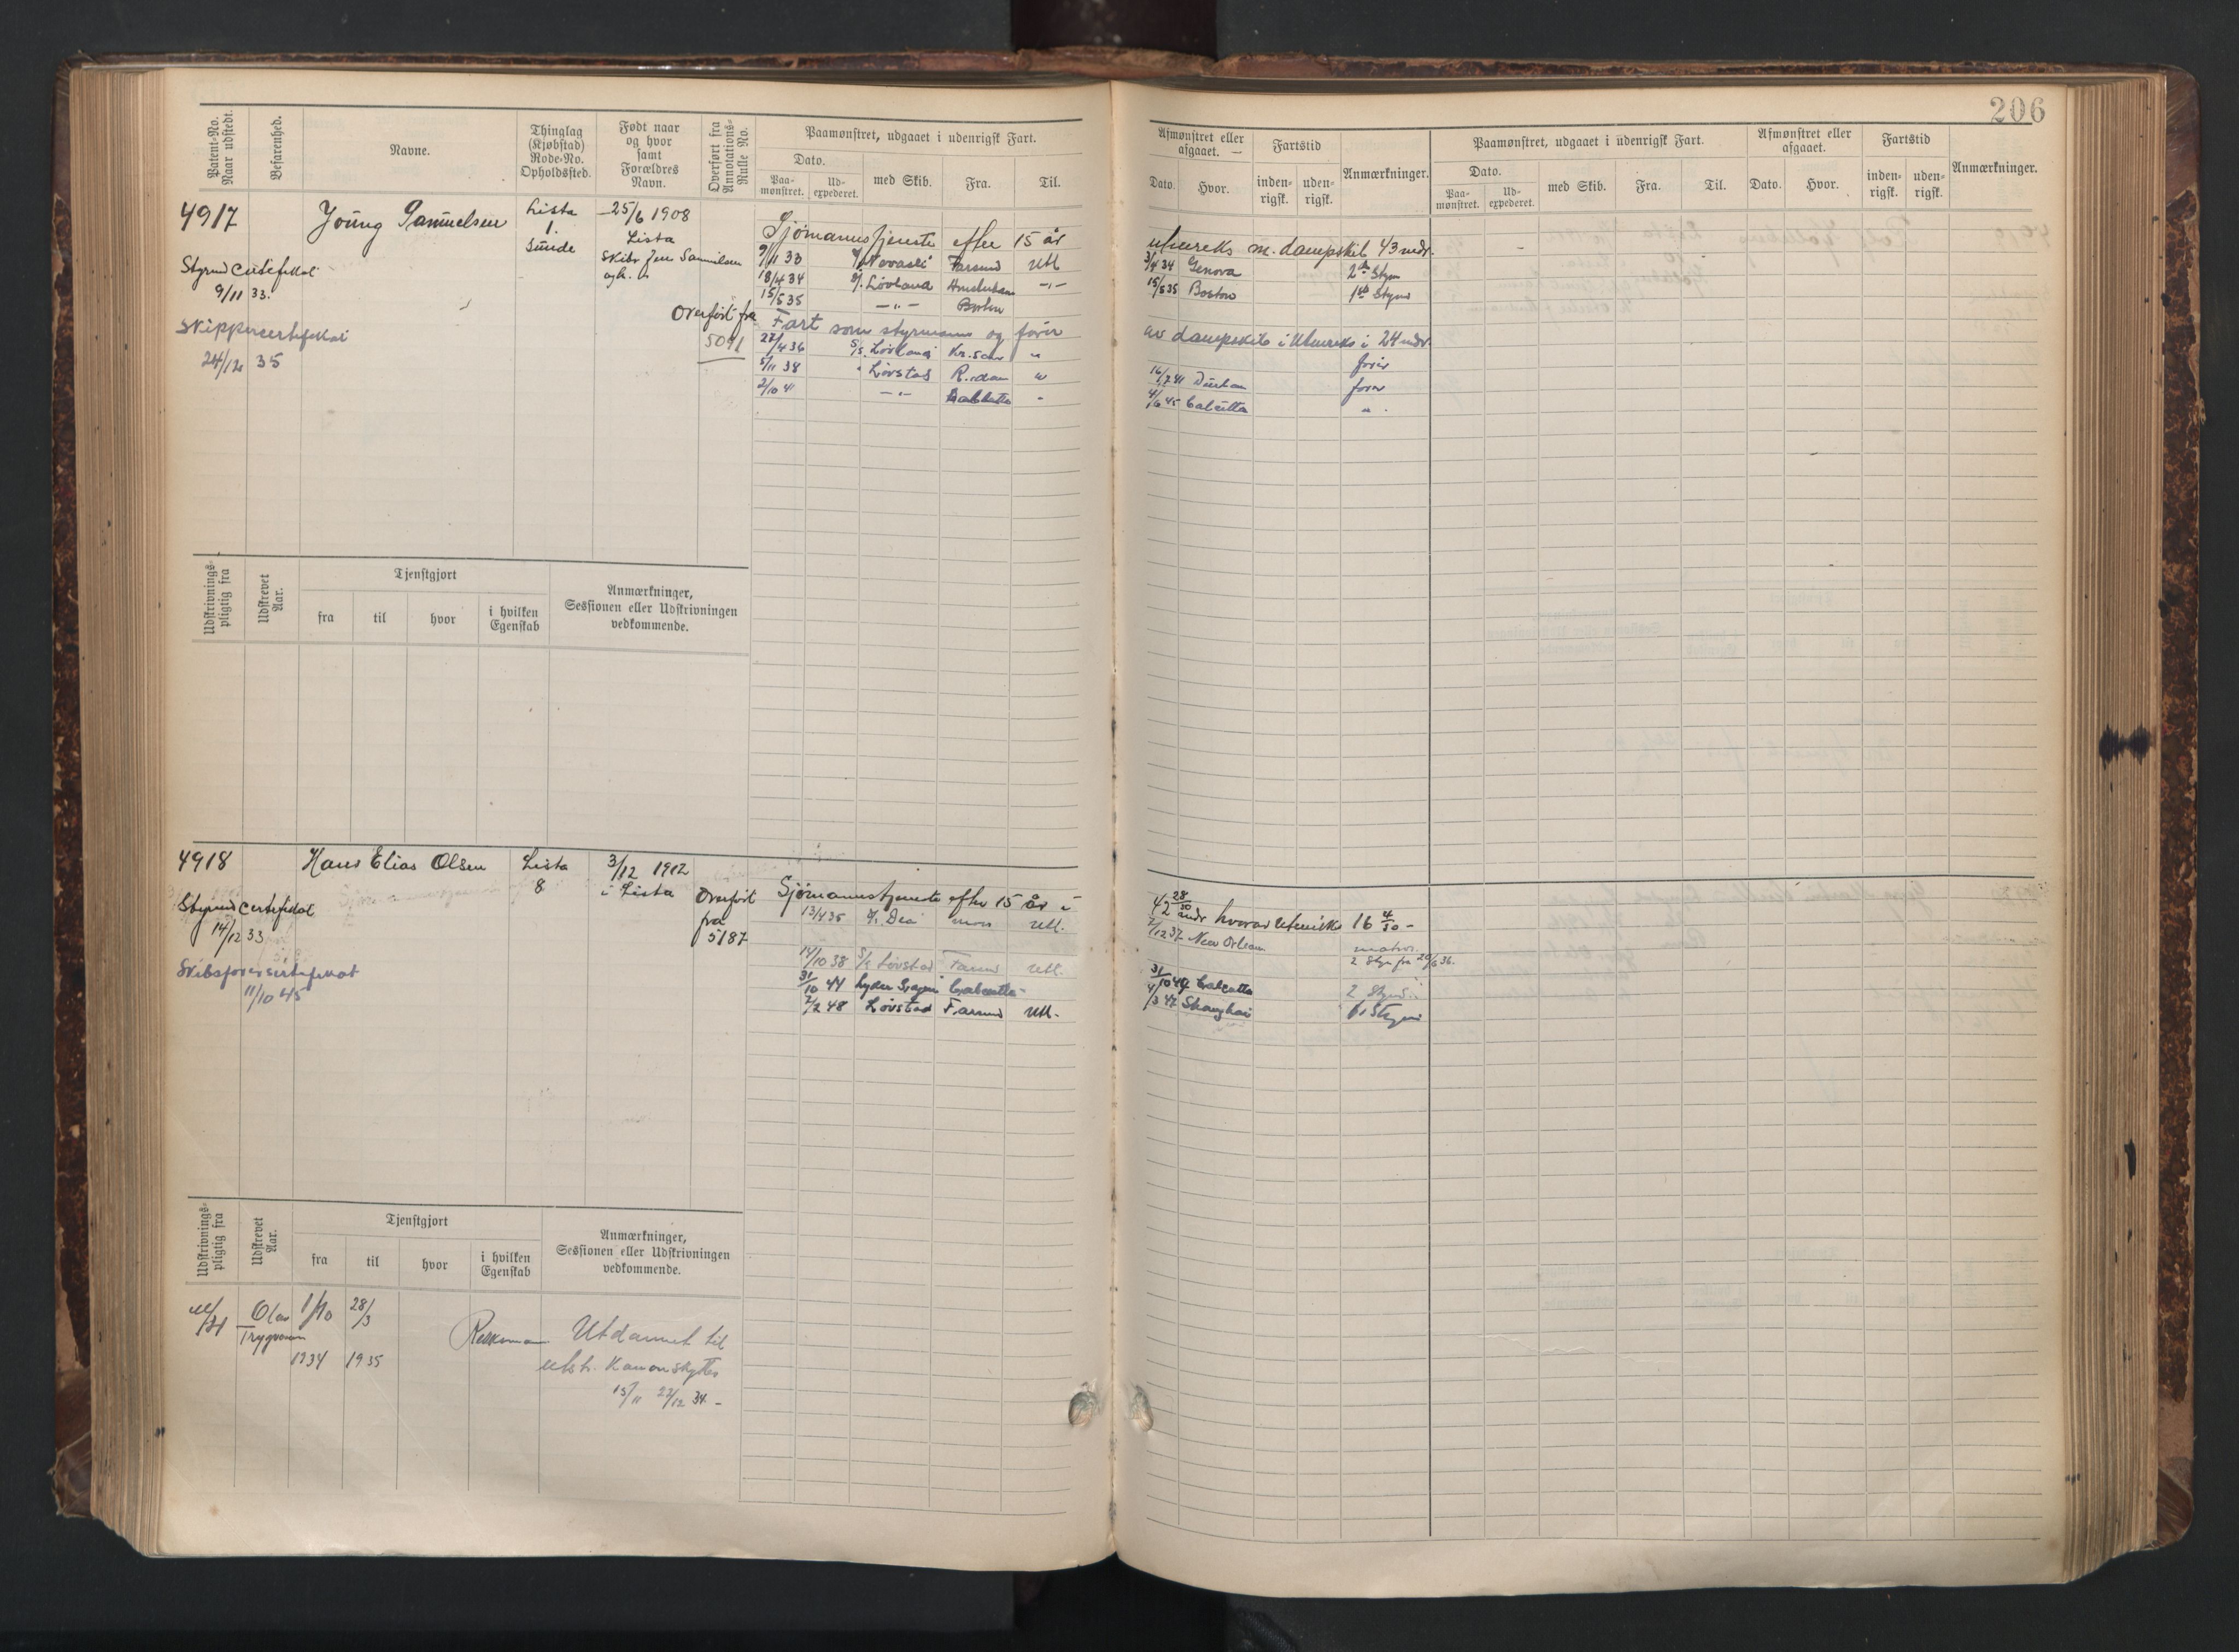 206
Patent-No. Naar udstedt.
Befarenhed.
Navne.
Thinglag (Kjøbstad) Rode-No. Opholdssted.
Født naar og hvor samt Forældres Navn.
Overført fra Annotations-Rulle No.
Paamønstret, udgaaet i udenrigsk Fart.
Dato.
Paa-mønstret.
Ud-expederet.
med Skib.
Fra.
Til.
Afmønstret eller afgaaet.
Dato.
Hvor.
Fartstid
inden-rigsk.
uden-rigsk.
Anmærkninger.
Paamønstret, udgaaet i udenrigsk Fart.
Dato.
Paa-mønstret.
Ud-expederet.
med Skib.
Fra.
Til.
Afmønstret eller afgaaet.
Dato.
Hvor.
Fartstid
inden-rigsk.
uden-rigsk.
Anmærkninger.
4917
Young Samuelsen
Lista
1.
Sunde
25/6 1908
Lista
Skibr Jens Samuelsen
og h.
Styrmd certifikat
9/11 33.
Skippercertifikat
24/12 35
Overført fra
5091
Sjömannstjeneste efter 15 år
utenriks m. dampskib 43 mdr.
9/11 33 Farsund Utl
3/4 34 Genova 2den Styrm
18/4 34 Lövland -"-
15/5 35 Boston 1ste Styrm
15/5 35 -"- Boston
Fart som styrmann og förer
av dampskib i Utenriks i 24 mdr.
27/4 36 S/s. Lövland Kr.sand "
förer
5/11 38 " Lövstad R.dam "
16/7 41 Durban förer
2/10 41 -"- Calcutta "
4/6 45 Calcutta "
Udskrivnings-pligtig fra
Udskrevet Aar.
Tjenstgjort
fra
til
hvor
i hvilken Egenskab
Anmærkninger, Sessionen eller Udskrivningen vedkommende.
4918
Hans Elias Olsen
Lista
8
3/12 1912
i Lista
Overført
fra
5187
Styrmd certifikat
14/12 33
Skibsförersertifikat
11/10 45
Sjömannstjeneste efter 15 år i
42 28/30 mdr hvorav Utenriks 16 4/30 -
13/4 35 Dea Moss Utl.
7/12 37 New Orleans matros.
2 Styrm fra 20/6 36.
14/10 38 S/s Lövstad Farsund Utl.
31/10 44 Calcutta 2 Styrm
31/10 44 Calcutta
7/2 48 Lövstad Farsund Utl.
4/3 47 Shanghai 1 Styrm
Udskrivnings-pligtig fra
Udskrevet Aar.
Tjenstgjort
fra
til
hvor
i hvilken Egenskab
Anmærkninger, Sessionen eller Udskrivningen vedkommende.
Olav
Trygvason
1/10
1934
28/3
1935
Utdannet til
Kanonskytter
15/11 22/12 34 -